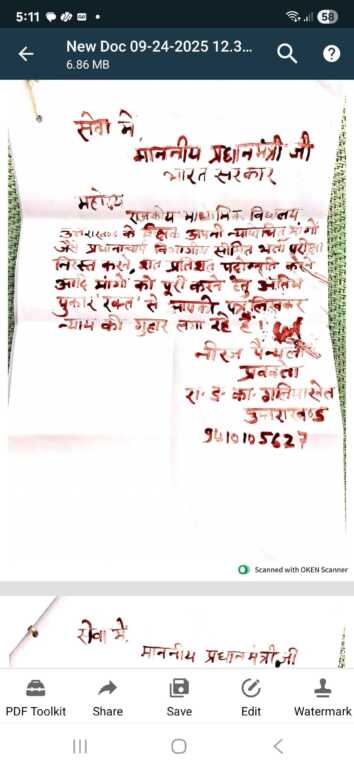 5:11
58
New Doc 09-24-2025 12.3...
6.86 MB
सेवा में
माननीय प्रधानमंत्री जी
भारत सरकार
महोदय
राजकीय माध्यमिक विद्यालय
उत्तराखण्ड के शिक्षक अपनी न्यायोचित मांगों
जैसे प्रधानाचार्य विभागीय सीमित भर्ती परीक्षा
निरस्त करने, शत प्रतिशत पदोन्नति करने
आदि मांगों को पूरी करने हेतु अंतिम
पुकार रक्त से आपको पत्र लिखकर
न्याय की गुहार लगा रहे हैं!
नीरज पैन्यूली
प्रवक्ता
रा. इ. का.
उत्तराखण्ड
9410105627
Scanned with OKEN Scanner
सेवा में,
माननीय प्रधानमंत्री जी
PDF Toolkit
Share
Save
Edit
Watermark